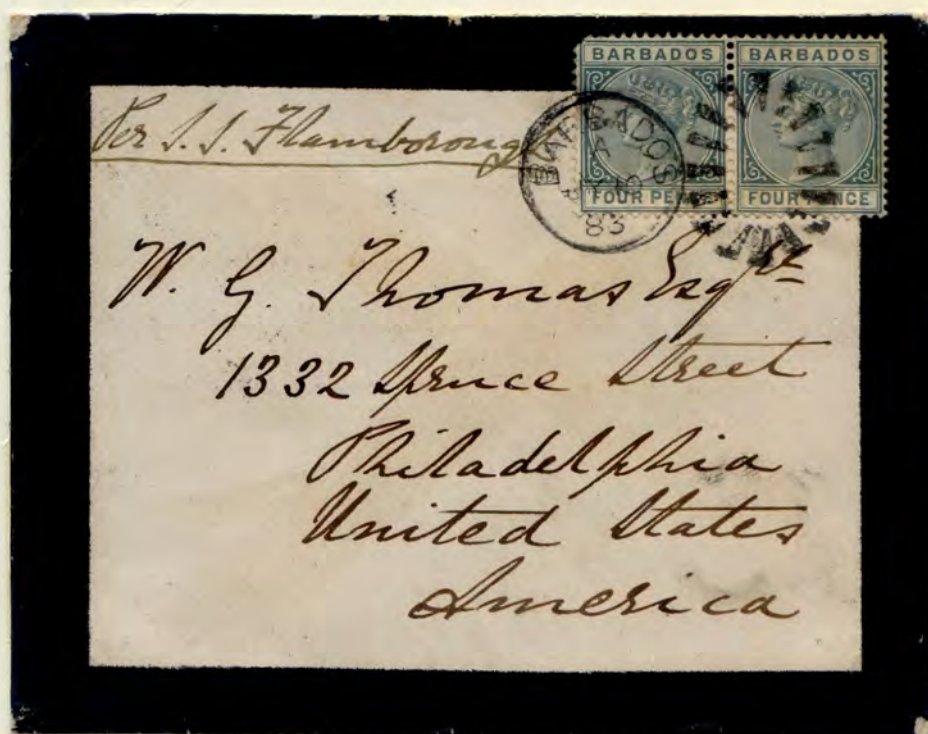 BARBADOS BARBADOS
FOUR PENCE FOUR PENCE
BARBADOS
A
10
83
Per S.S. Flamboroug
W. G. Thomas Esqre
1332 Spruce Street
Philadelphia
United States
America